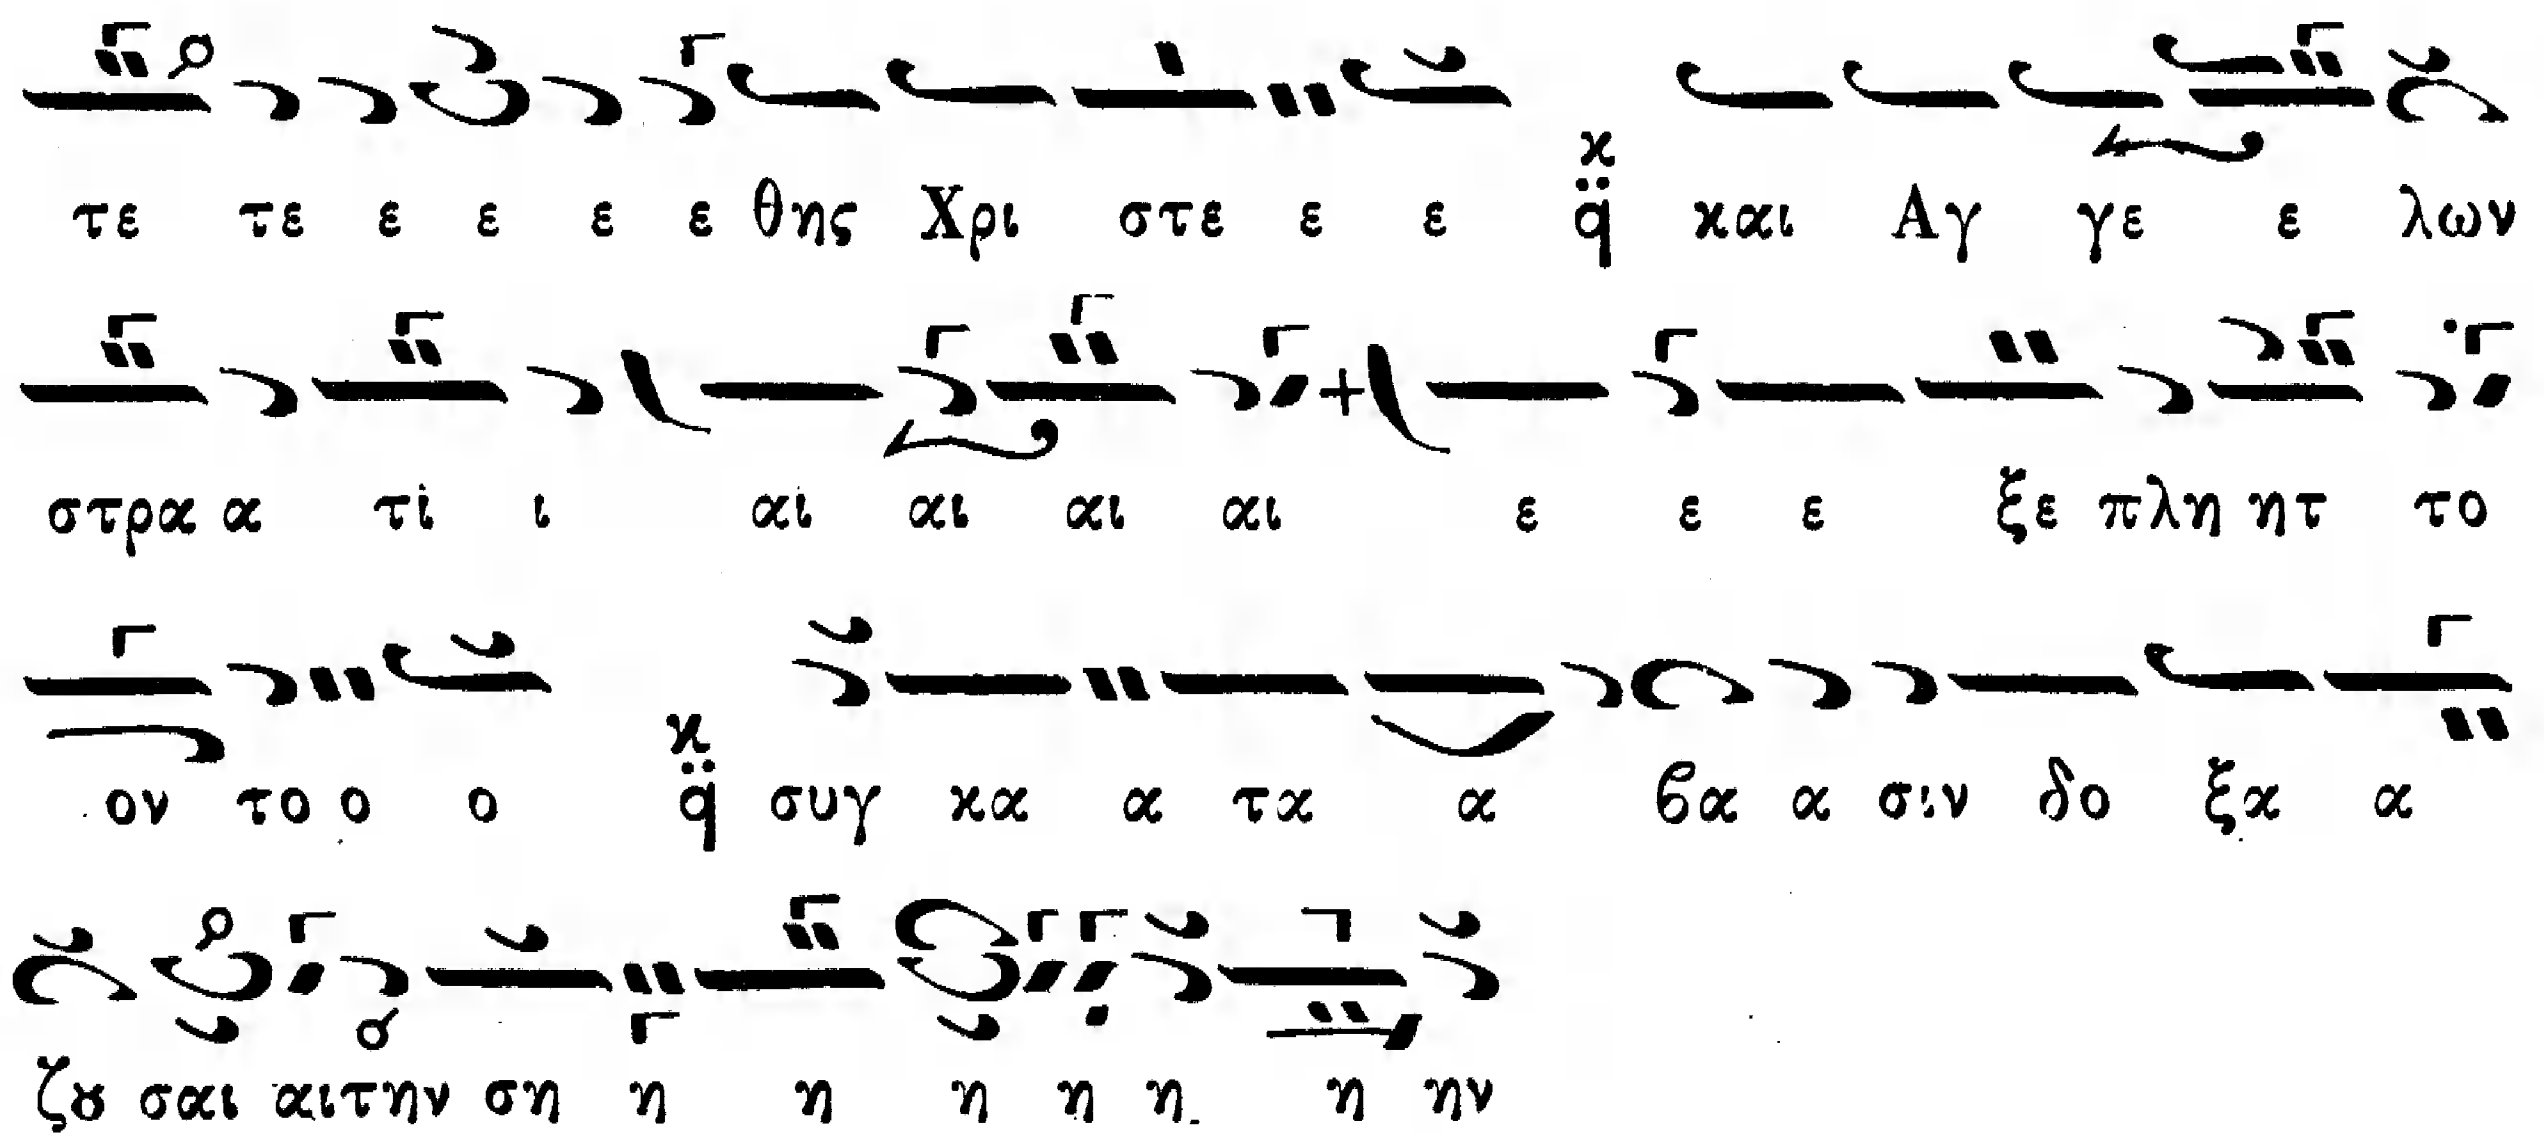 τε τε ε ε ε ε θης Χρι στε ε ε ϰ q̈ και Αγ γε ε λων
στρα α τι ι αι αι αι αι ε ε ε ξε πλη ητ το
ον το ο ο ϰ q̈ συγ κα α τα α ϐα α σιν δο ξα α
ζȣ σαι αι την ση η η η η η η ην